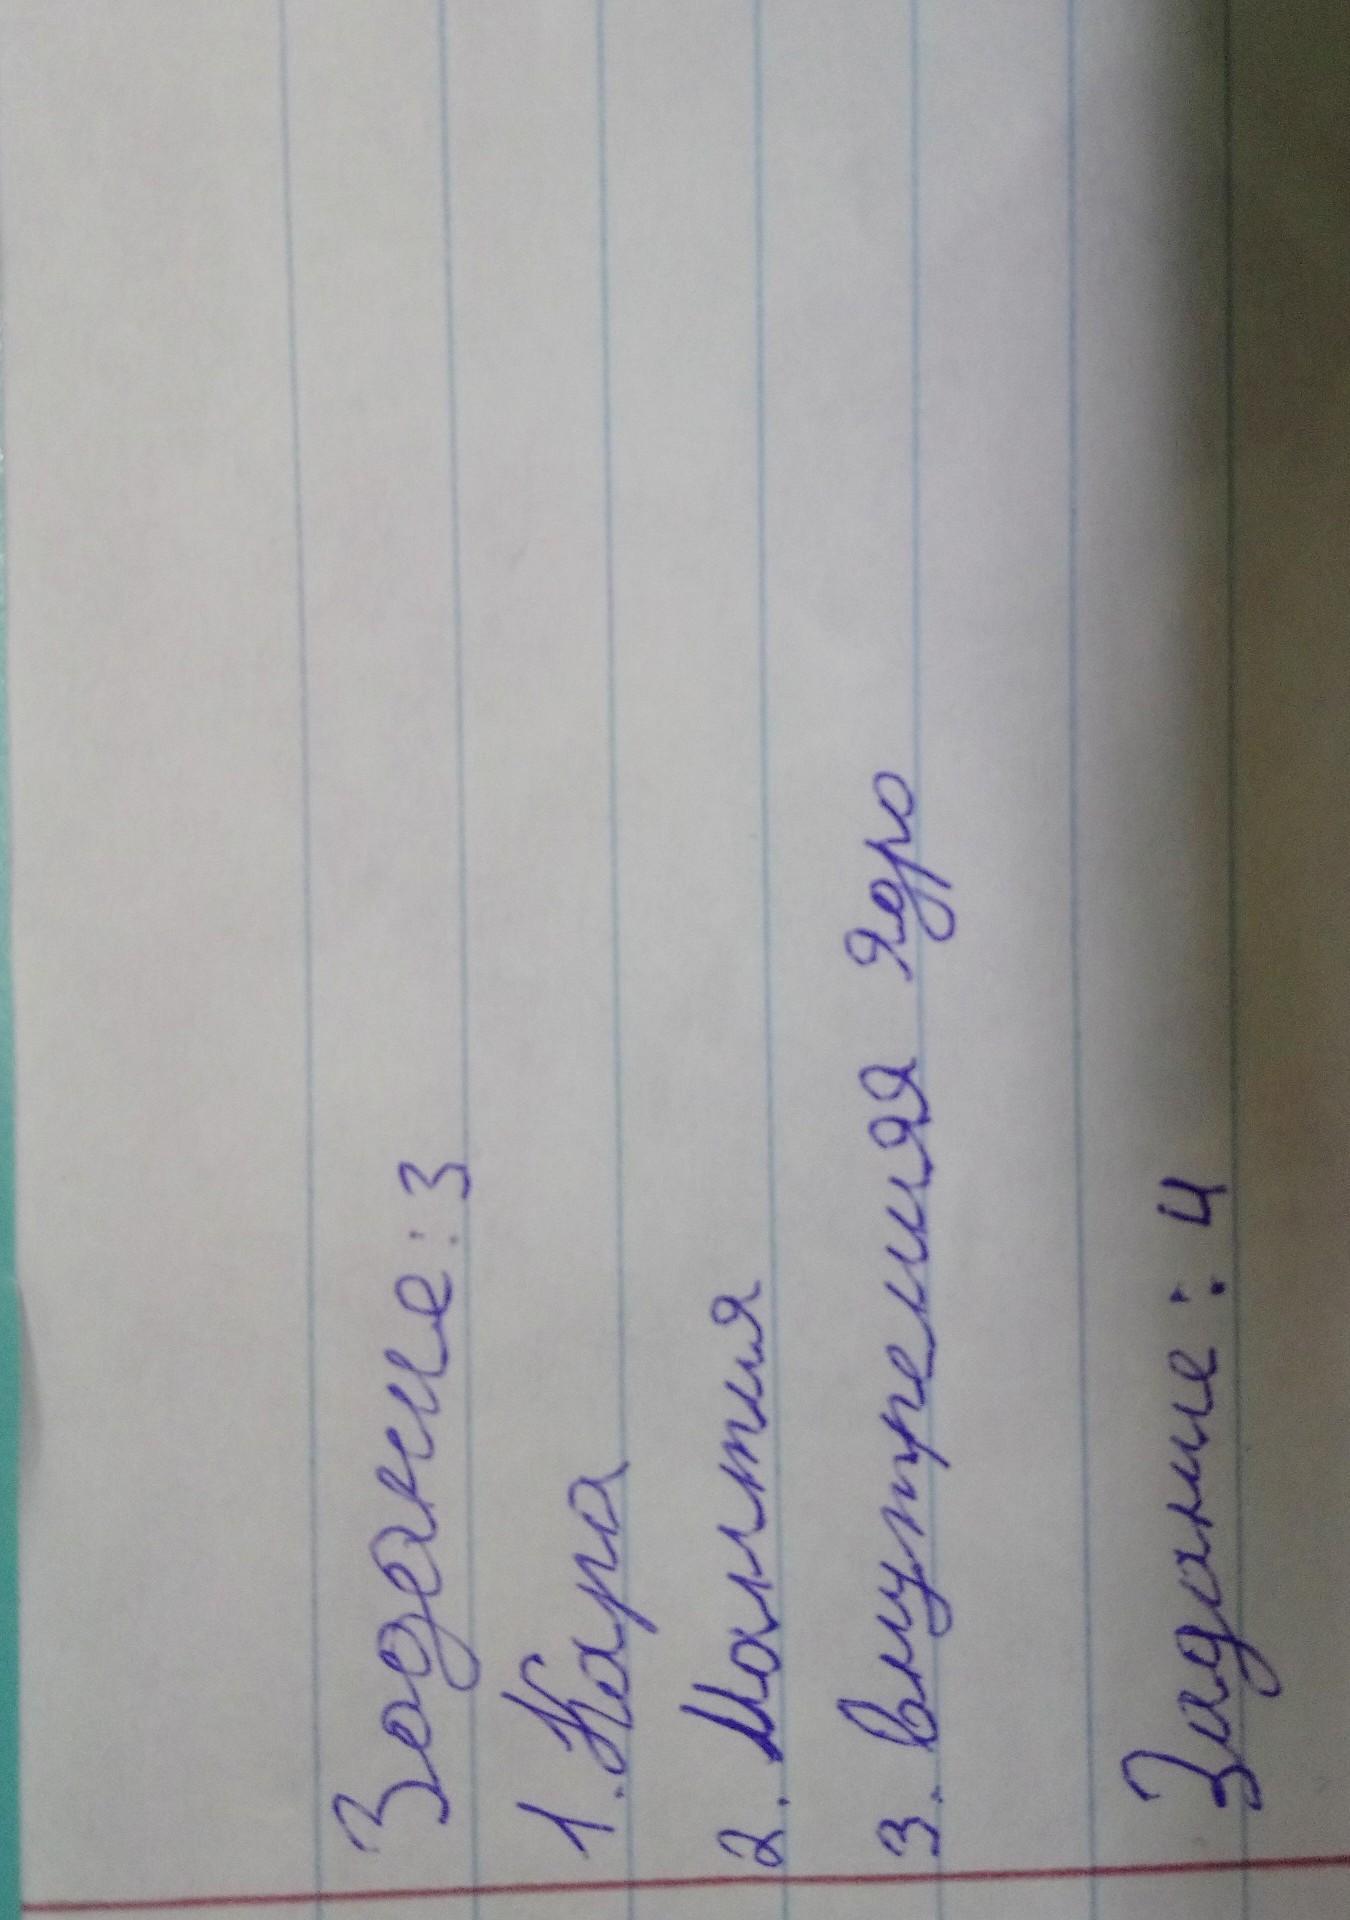 Задание: 3
1. Кара
2. Мантия
3. Внутреняя ядро
Задание: 4